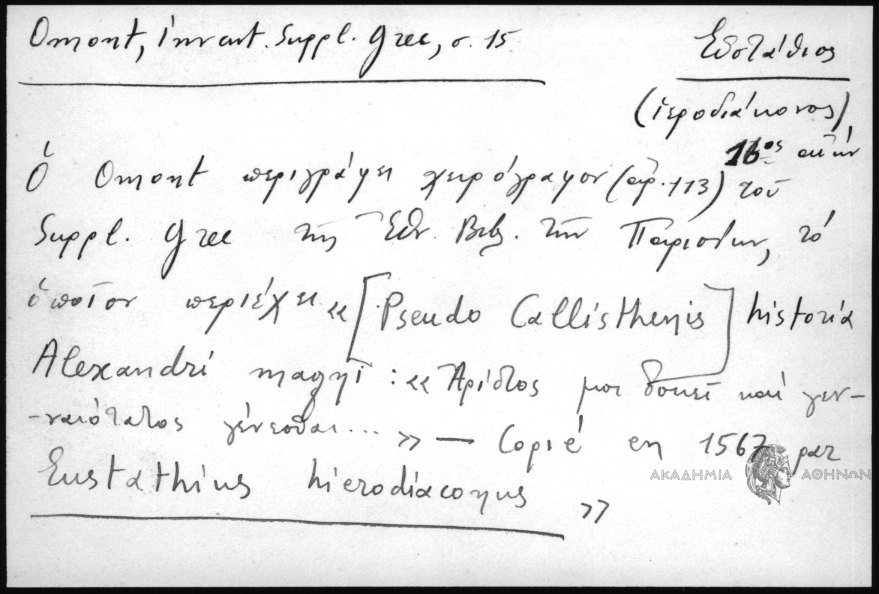 Omont, invent. Suppl. Grec, σ. 15
Εὐστάθιος
(ἱεροδιάκονος)
16ος αἰών
Ὁ Omont περιγράφει χειρόγραφον (ἀρ. 113) τοῦ
Suppl. Grec τῆς Ἐθν. Βιβ. τῶν Παρισίων, τό
ὁποῖον περιέχει «[Pseudo Callisthenis] historia
Alexandri magni : «Ἄριστος μοι δοκεῖ καί γεν-
-ναιότατος γένεσθαι... » — Copié en 1567 par
Eustathius hierodiaconus »
ΑΚΑΔΗΜΙΑ ΑΘΗΝΩΝ